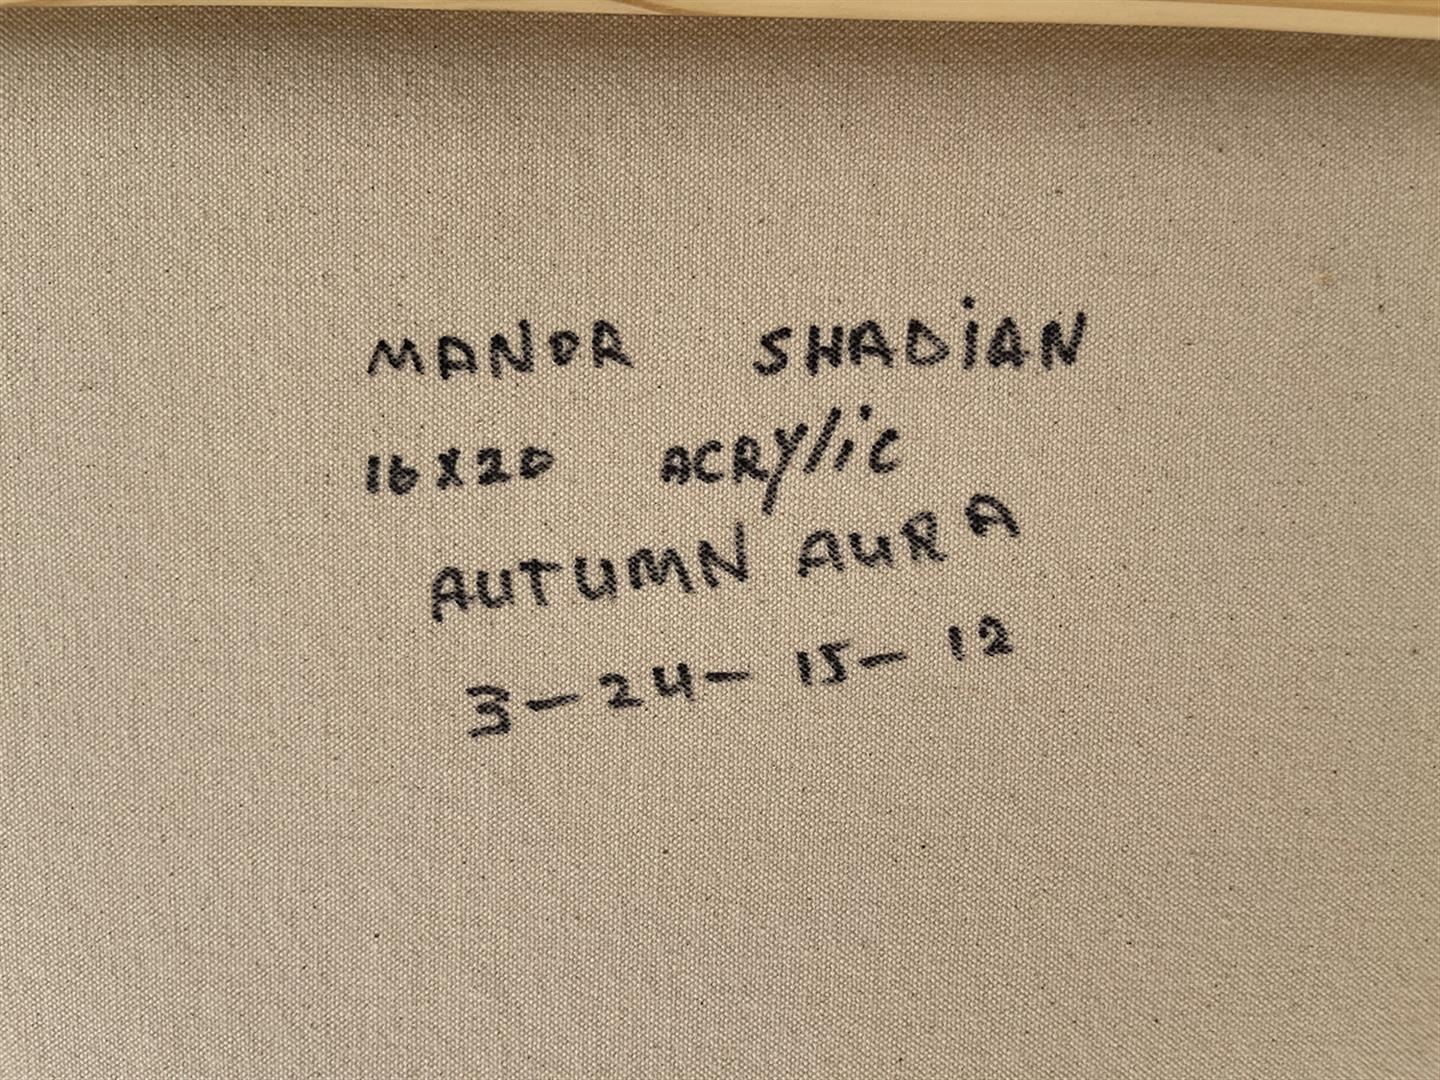 MANOR SHADiAN
16x20 ACRYlic
AUTUMN AURA
3-24-15-12